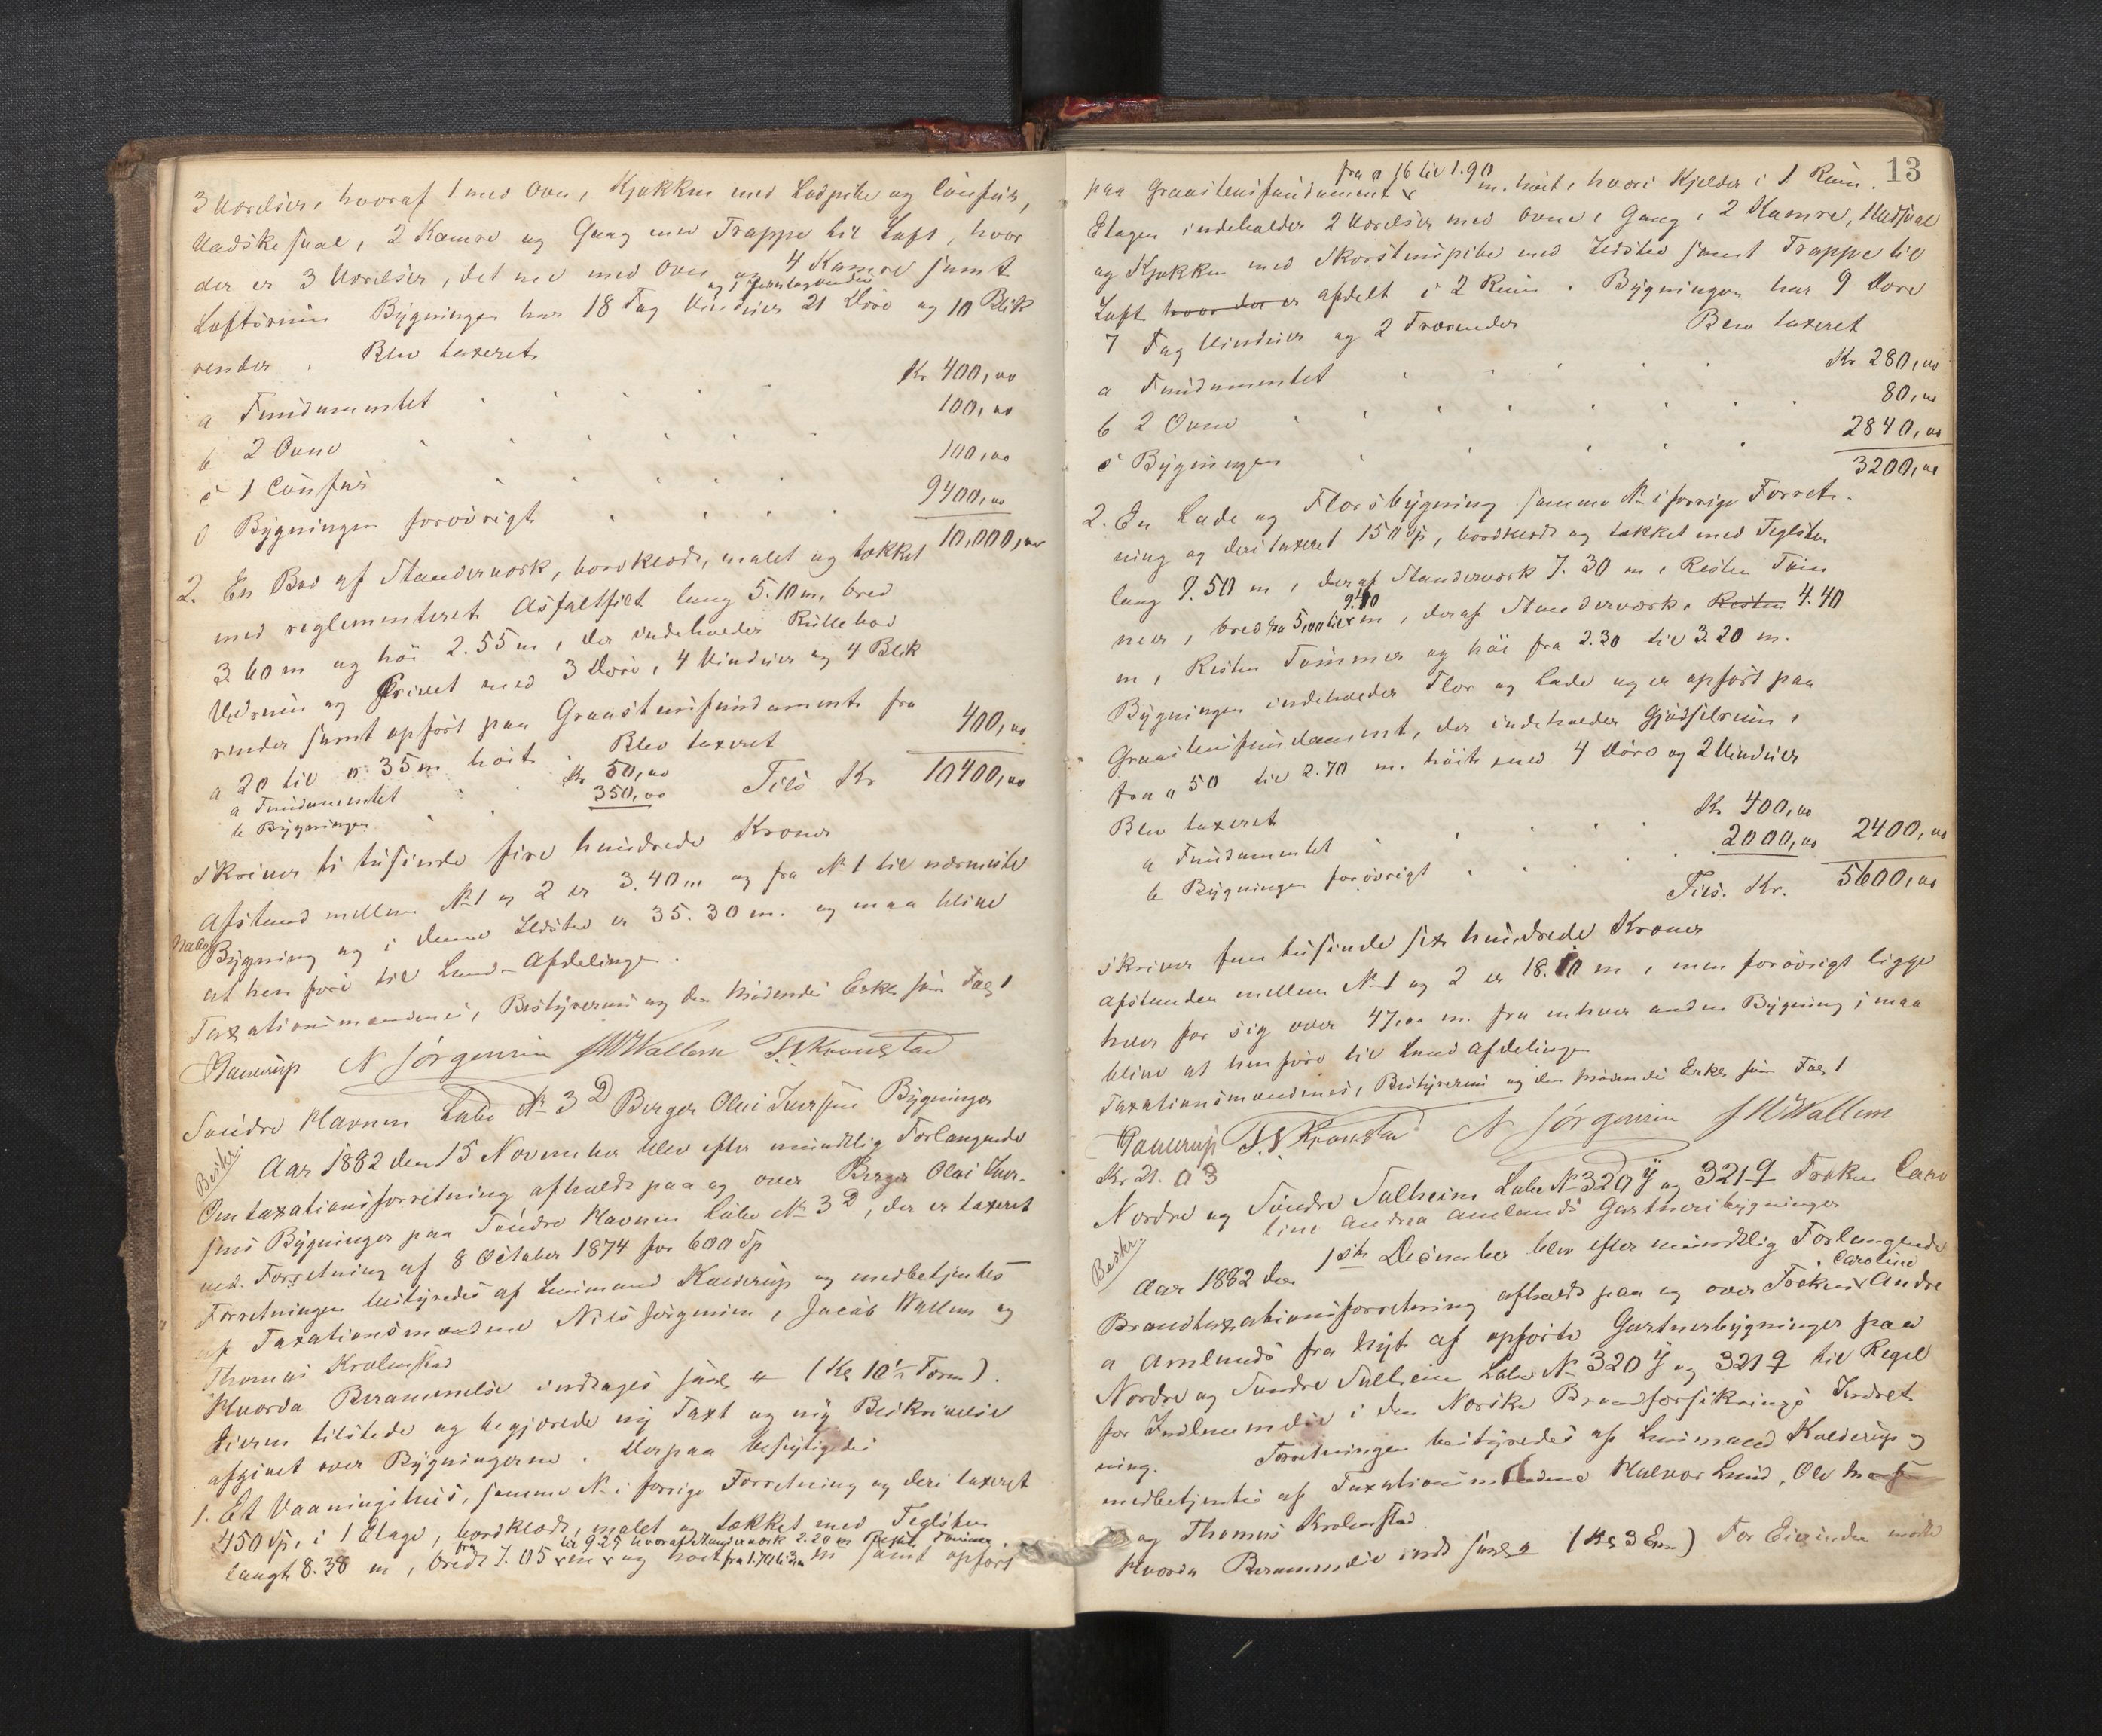 3 Værelser, hvoraf 1 med Ovn, Kjøkken med Ladpibe og Comfur,
Vadskesval, 2 Kamre og Gang med Trappe til Loft, hvor
der er 3 Værelser, det ene med Ovn og 4 Kamre samt
Loftsrum Bygningen har 18 Fag Vinduer 21 Døre og 10 Blik
render. Blev taxeret
a Fundamentet Kr 400,00
b 2 Ovne 100,00
c 1 Comfur 100,00
d Bygningen forøvrigt 9400,00
10,000,00
2. En Bod af Standerværk, bordklædt, malet og tækket
med reglementeret Asfaltfilt lang 5.10 m, bred
3.60 m og høi 2.55 m, der indeholder Rullebod
Vedrum og Privet med 3 Døre, 4 Vinduer og 4 Blik
render samt opført paa Graastensfundament fra
0.20 til 0.35 m høit. Blev taxeret 400,00
a Fundamentet Kr 50,00
b Bygningen 350,00 Tils Kr 10400,00
skriver ti tusinde fire hundrede Kroner
Afstand mellem No 1 og 2 er 3.40 m og fra No 1 til nærmeste
Nabo Bygning og i denne Ildsted er 35.30 m. og maa blive
at henføre til Land-Afdelingen.
Taxationsmændenes, Bestyrerens og den mødendes Erkl. som Fol 1
Kalderup N Jørgensen J W Wallem T. N Kronstad
Søndre Havnen Løbe No 3 D Berger Olai Iversens Bygninger
Beskr.
Aar 1882 den 15 November blev efter mundtlig Forlangende
Omtaxationsforretning afholdt paa og over Berger Olai Iver-
sens Bygninger paa Søndre Havnen Løbe No 3 D, der er taxeret
ved Forretning af 8 October 1874 for 600 Sp
Forretningen bestyredes af Lensmand Kalderup og medbetjentes
af Taxationsmændene Nils Jørgensen, Jacob Wallem og
Thomas Kronstad
Hvorda Berammelse indtages (Kl 10½ Form).
Eieren tilstede og begjærede ny Taxt og ny Beskrivelse
afgivet over Bygningerne. Derpaa besigtigedes
1. Et Vaaningshus, samme No i forrige Forretning og deri taxeret
450 Sp, i 1 Etage, bordklædt, malet og tækket med Teglsten
langt 8.38 m, bredt fra 7.05 til 9.25 hvoraf Standerværk 2.20 m Resten Tømmer, og høit m samt opført
13
paa Graastensfundament fra 0.16 til 1.90 m. høit, hvori Kjelder i 1 Rum.
Etagen indeholder 2 Værelser med Ovne, Gang, 2 Kamre, 1 Vadsval
og Kjøkken med Skorstenspibe med Ildsted samt Trappe til
Loft hvor der er afdelt i 2 Rum. Bygningen har 9 Døre
7 Fag Vinduer og 2 Trærender Blev taxeret
a Fundamentet Kr 280,00
b 2 Ovne 80,00
c Bygningen 2840,00
3200,00
2. En Lade og Florsbygning samme No i forrige Forret-
ning og deri taxeret 150 Sp, bordklædt og tækket med Teglsten
lang 9.50 m, deraf Standerværk 7.30 m, Resten Tøm
mer, bred fra 5,00 til 9.10 m, deraf Standerværk Resten 4.40
m, Resten Tømmer og høi fra 2.30 til 3.20 m.
Bygningen indeholder Flor og Lade og er opført paa
Graastensfundament, der indeholder Gjødselrum,
fra 0.50 til 2.70 m. høit, med 4 Døre og 2 Vinduer
Blev taxeret
a Fundamentet Kr 400,00
b Bygningen forøvrigt 2000,00 2400,00
Tils. Kr. 5600,00
skriver fem tusinde sex hundrede Kroner
Afstanden mellem No 1 og 2 er 18.10 m, men forøvrigt ligge
hver for sig over 47,00 m. fra enhver anden Bygning, maa
blive at henføre til Land Afdelingen
Taxationsmændenes, Bestyrerens og den mødendes Erkl. som Fol 1
Kalderup T. N. Kronstad N Jørgensen J W Wallem
Kr 21.03
Nordre og Søndre Solheim Løbe No 320 y og 321 q Frøken Caro
line Andrea Amlands Gartneribygninger
Beskr.
Aar 1882 den 1ste December blev efter mundtlig Forlangende
Brandtaxationsforretning afholdt paa og over Frøken Caroline Andre
a Amlands fra Nyt af opførte Gartnerbygninger paa
Nordre og Søndre Solheim Løbe No 320 y og 321 q til Regel
for Indlemmelse i den Norske Brandforsikrings Indret
ning. Forretningen bestyredes af Lensmand Kalderup og
medbetjentes af Taxationsmændene Halvor Lund, Ole
og Thomas Kronstad
Hvorda Berammelse (Kl 3 Em) For Eierinden mødte